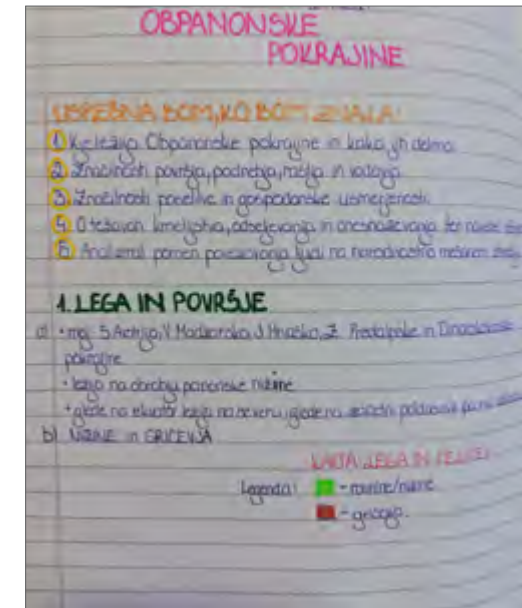 OBPANONSKE
POKRAJINE
USPEŠNA BOM, KO BOM ZNALA:
1. Kje ležijo Obpanonske pokrajine in kako jih delimo.
2. Značilnosti površja, podnebja, rastja in vodovja.
3. Značilnosti poselitve in gospodarske usmerjenosti.
4. O težavah kmetijstva, odseljevanja in onesnaževanja ter
5. pomen povezovanja ljudi na narodnostno mešanem
1. LEGA IN POVRŠJE
a) • mej. S Avstrija, V Madžarska, J Hrvaška, Z Predalpske in Dinarskokraške
pokrajine
• ležijo na obrobju panonske nižine
• glede na ekvator ležijo na severu, glede na
b) NIŽINE in GRIČEVJA
KARTA LEGA IN
Legenda: - ravnine/nižine
- gričevja.